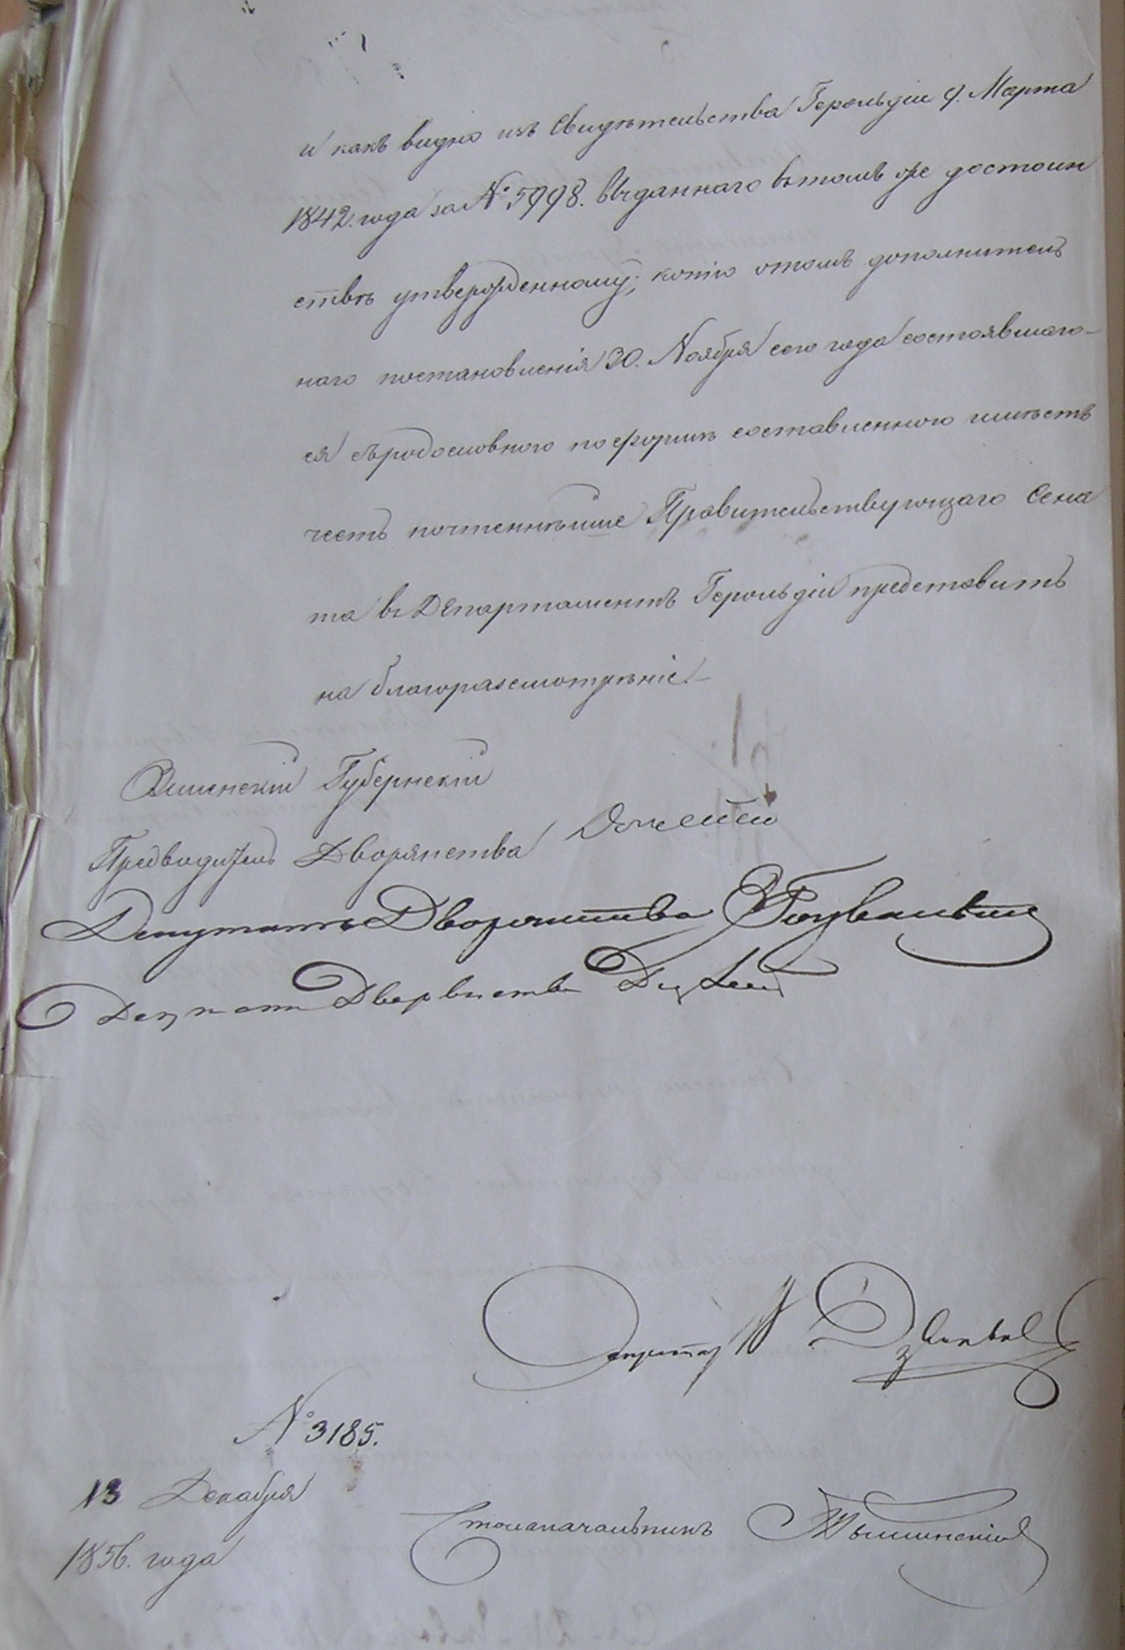 и какъ видно изъ Свидѣтельства Герольдіи 9. Марта
1842. года за № 5998. выданнаго въ томъ же достоин
ствѣ утвержденному; копію отомъ дополнитель
наго постановленія 30. Ноября сего года состоявшаго-
ся съродословного по формѣ составленного имѣетъ
честь почтеннѣйше Правительствующаго Сена
та въ Департаментъ Герольдіи представить
на благоразсмотрѣніе.
Виленскій Губернскій
Предводитель Дворянства Домейко
Депутатъ Дворянства
Депутатъ Дворянства
Секретарь
№ 3185.
13 Декабря
1856. года
Столоначальникъ Тышинскій